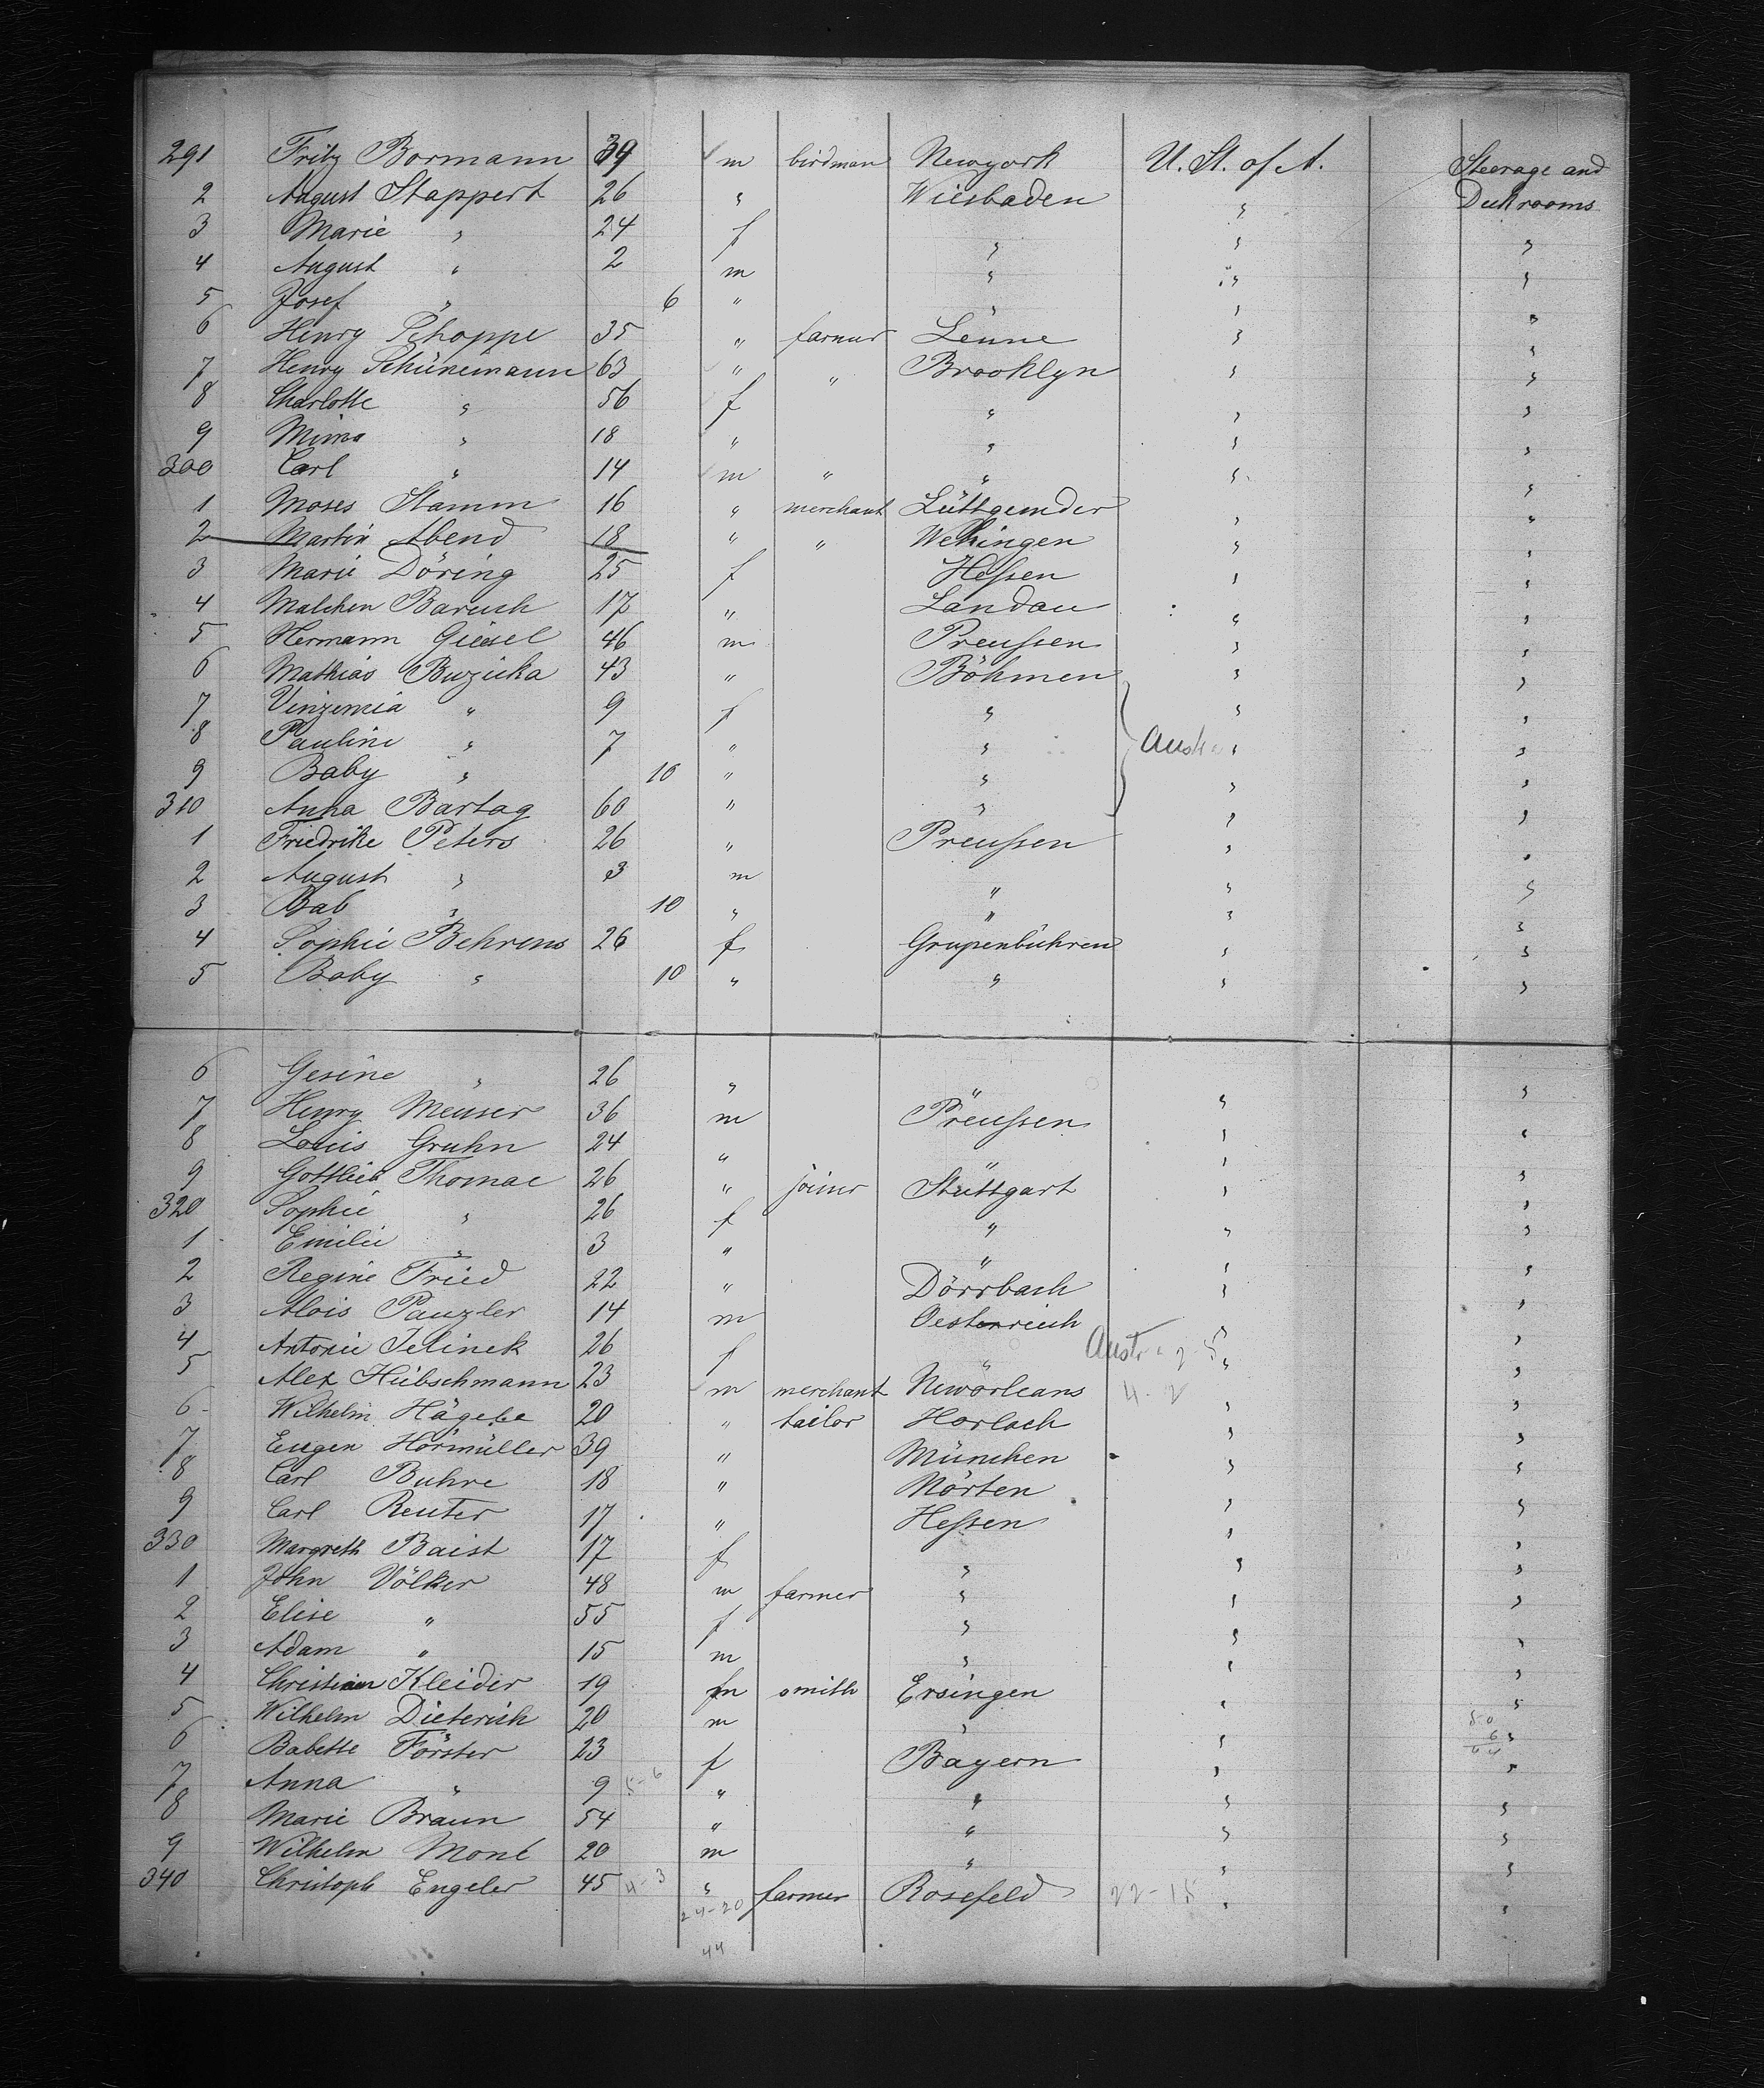 291 Fritz Bormann 39 m birdman Newyork U. St. of A. Steerage and
2 August Stappert 26 " Wiesbaden " Deckrooms
3 Marie " 24 f " " "
4 August " 2 m " " "
5 Josef " 6 " " "
6 Henry Schoppe 35 " farmer Lenne " "
7 Henry Schünemann 63 " " Brooklyn " "
8 Charlotte " 56 f " " "
9 Mima " 18 " " " "
300 Carl " 14 m " " " "
1 Moses Stamm 16 " merchant Lüttgemder " "
2 Martin Abend 18 " " Wehingen " "
3 Marie Döring 25 f Hessen " "
4 Malchen Baruch 17 " Landau " "
5 Hermann Giesel 46 m Preussen " "
6 Mathias Buzicka 43 " Böhmen " "
7 Vinzemia " 9 f " " "
8 Pauline " 7 " " Aust " "
9 Baby " 10 " " " "
310 Anna Bartag 60 " " " "
1 Friedrike Peters 26 " Preussen " "
2 August " 3 m " " "
3 Bab " 10 " " " "
4 Sophie Behrens 26 f Grupenbühren " "
5 Baby " 10 " " " "
6 Gesine " 26 " " " "
7 Henry Meuser 36 m Preussen " "
8 Louis Gruhn 24 " " " "
9 Gottlieb Thomae 26 " joiner Stuttgart " "
320 Sophie " 26 f " " "
1 Emilie " 3 " " " "
2 Regine Fried 22 " Dörrbach " "
3 Alois Panzler 14 m Oesterreich " "
4 Antonie Jelinek 26 f " Austr " "
5 Alex Hübschmann 23 m merchant Neworleans " "
6 Wilhelm Hägele 20 " tailor Horlach " "
7 Eugen Hörmüller 39 " München " "
8 Carl Buhre 18 " Nörten " "
9 Carl Reuter 17 " Hessen " "
330 Margreth Baist 17 f " " "
1 John Völker 48 m farmer " " "
2 Elise " 55 f " " "
3 Adam " 15 m " " "
4 Christian Kleider 19 m smith Ersingen " "
5 Wilhelm Dieterich 20 m " " "
6 Babette Förster 23 f Bayern " "
7 Anna " 9 5-6 " " " "
8 Marie Braun 54 " " " "
9 Wilhelm Mont 20 m " " "
340 Christoph Engeler 45 4-3 " farmer Rosefeld 22-15 " "
24-20
44